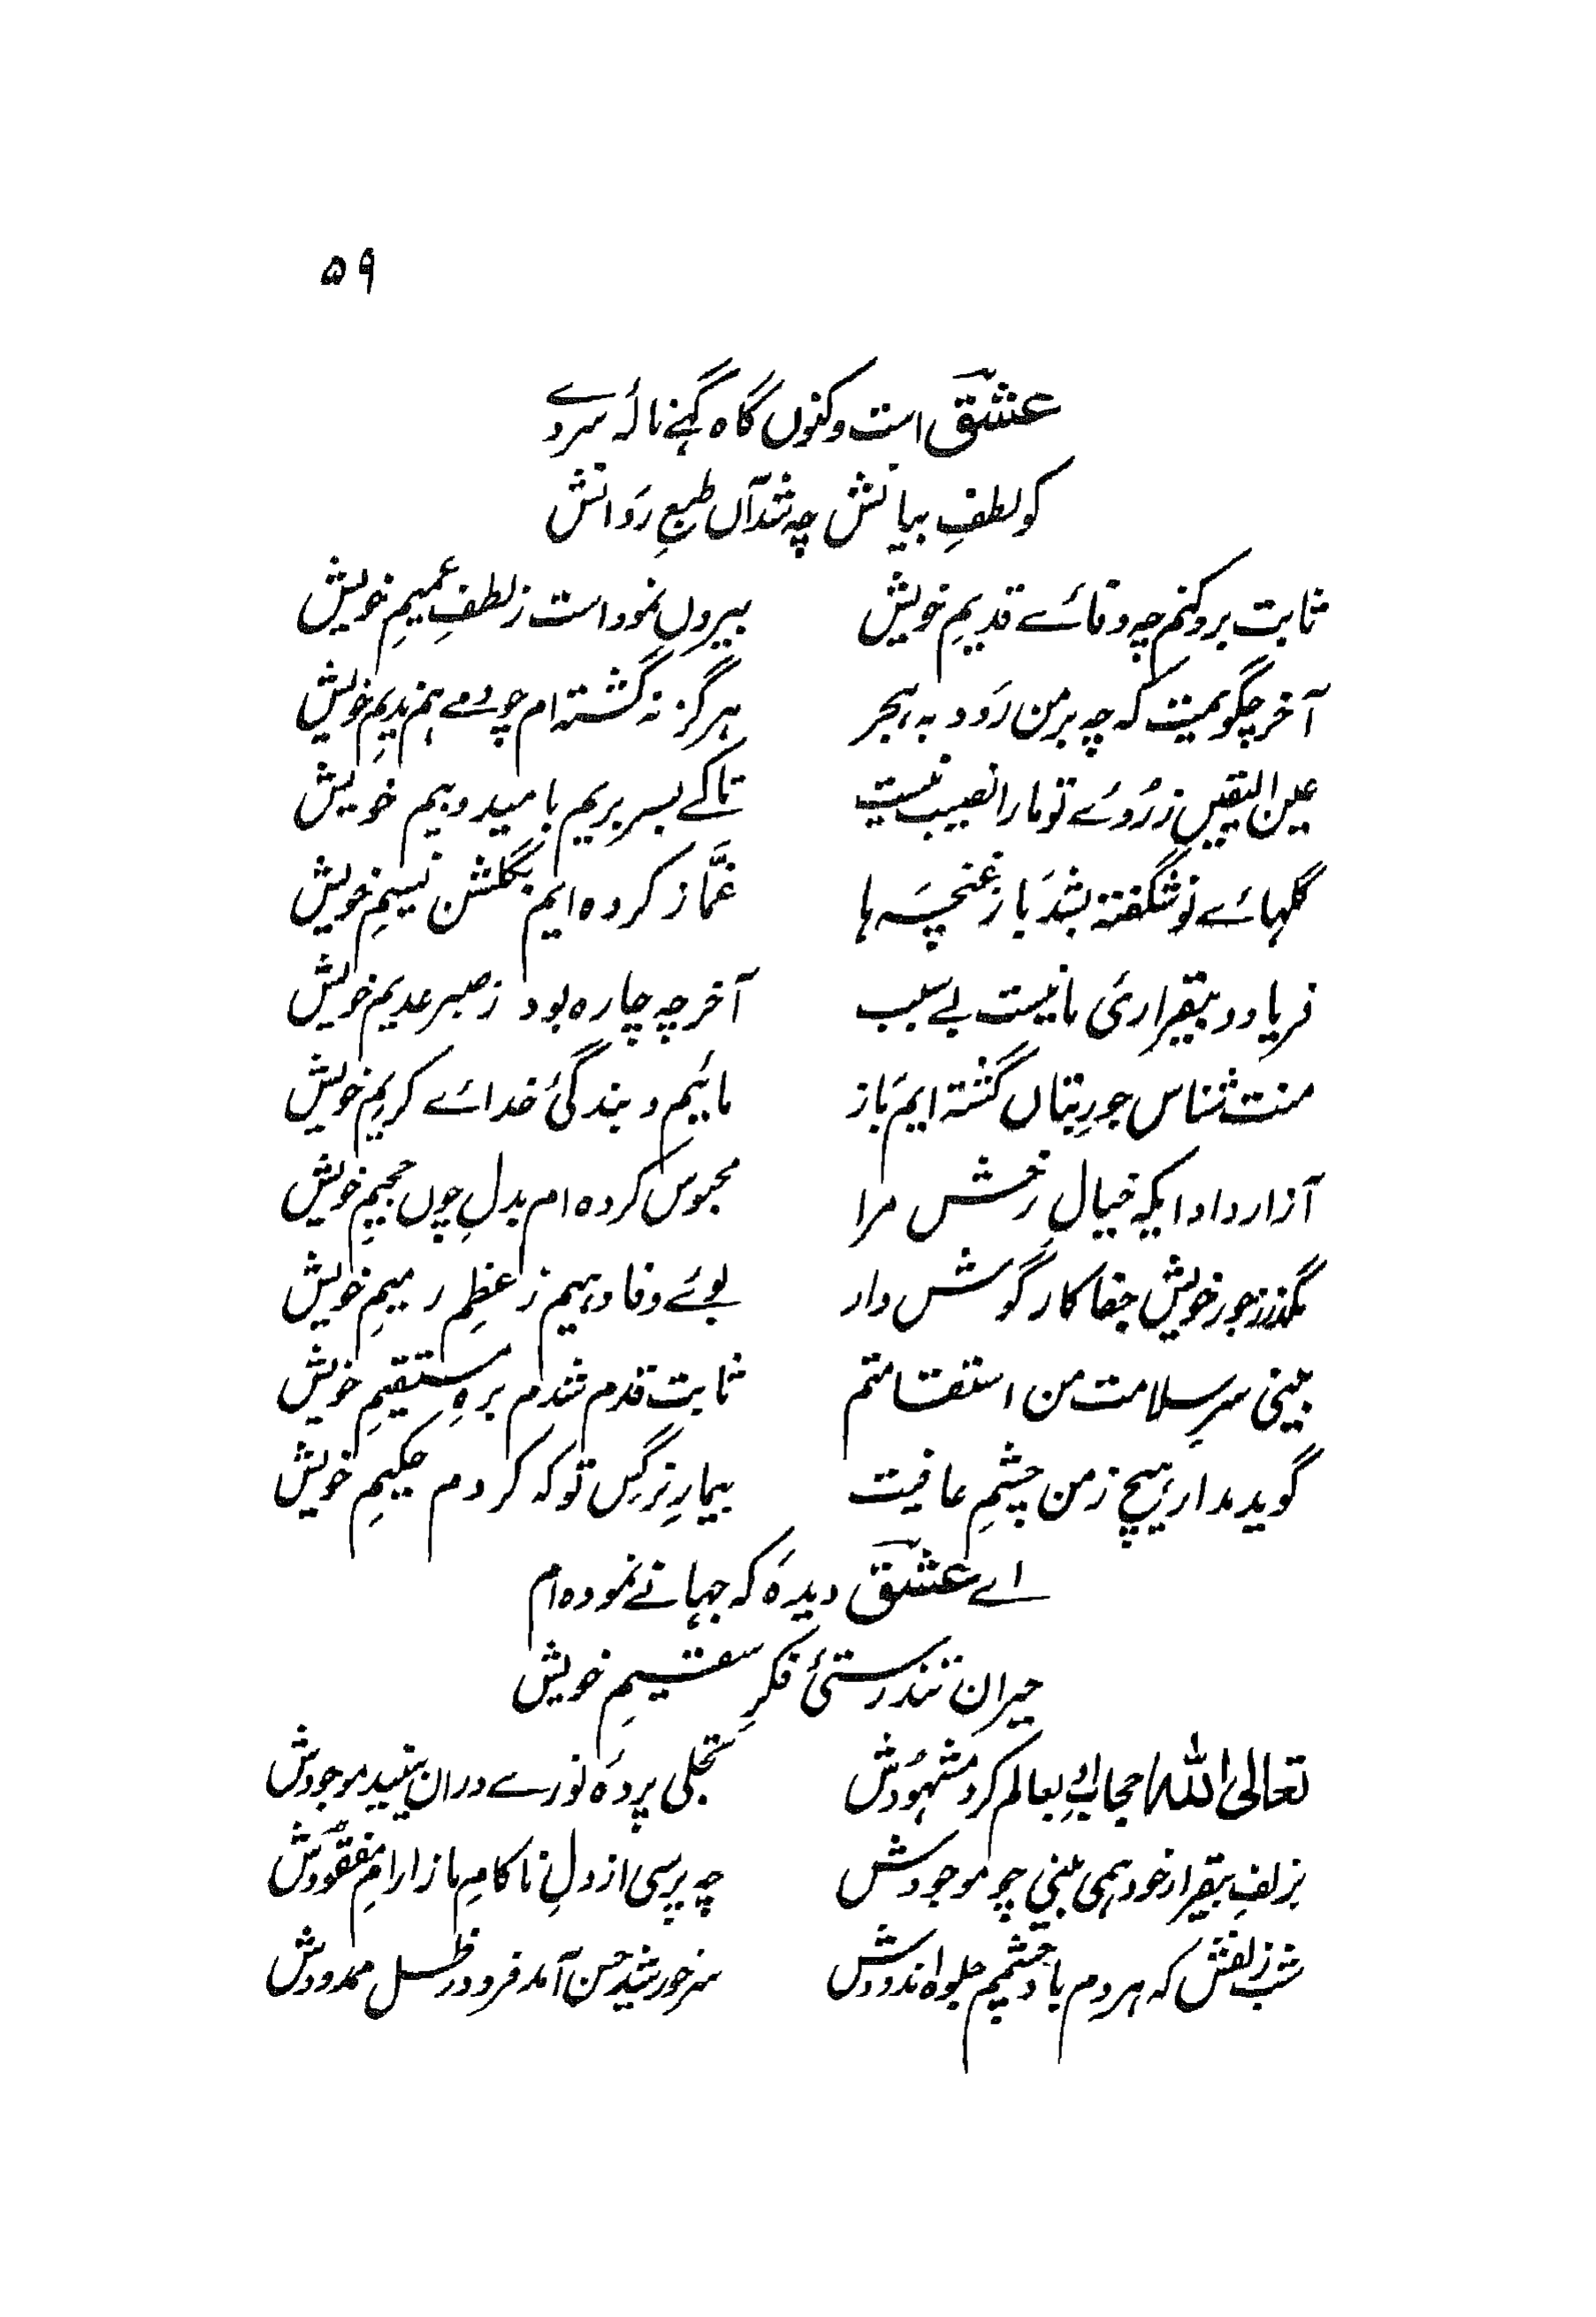 ۵۹
عشق است و کنوں گاہ گہے نالۂ سردے
کو لطفِ بیانش چہ شد آں طبعِ رَوانش
ثابت بر و کنم چہ وفائے قدیمِ خویش بیروں نمود است ز لطفِ عمیمِ خویش
آخر چگویمت کہ چہ بر من رَود بہ ہجر ہرگز نہ گشتہ ام چو دمے ہم ندیمِ خویش
عین الیقیں ز رُوئے تو ما را نصیب نیست تا کے بسر بریم بامید و بیم خویش
گلہائے نو شگفتہ بشد باز غنچہ ہا غمَّاز کردہ ایم بگلشن نسیمِ خویش
فریاد و بیقراریٔ ما نیست بے سبب آخر چہ چارہ بود ز صبر عدیم خویش
منت شناس جورِ بتاں گشتہ ایم باز مائیم و بندگیٔ خدائے کریمِ خویش
آزار داد ایکہ خیالِ رخش مرا محبوس کردہ ام بدلِ چوں جحیمِ خویش
بگذر ز جور خویش جفا کار گوش دار بوئے وفا دہیم ز عظمِ رمیمِ خویش
بینی سرِ سلامت من استقامتم ثابت قدم شدم برہِ مستقیمِ خویش
گوید مدار ہیچ ز من چشمِ عافیت بیمارِ نرگس تو کہ کردم حکیمِ خویش
اے عشق دیدہ کہ جہانے نمودہ ام
حیران تندرستیٔ فکرِ سقیمِ خویش
تعالی اللہ حجابِ او بعالم کرد مشہودش تجلی پردہ نورے دران بینید موجودش
بزلفِ بیقرار خود ہمی بینی چو موجودش چہ پرسی از دلِ ناکامِ ما زارامِ مفقودش
شب زلفش کہ ہر دم با دو چشمم جلوہ اندودش سر خورشید حسن آمد فرو در ظل ممدودش